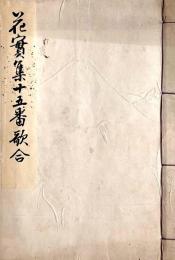 花實集十五番歌合